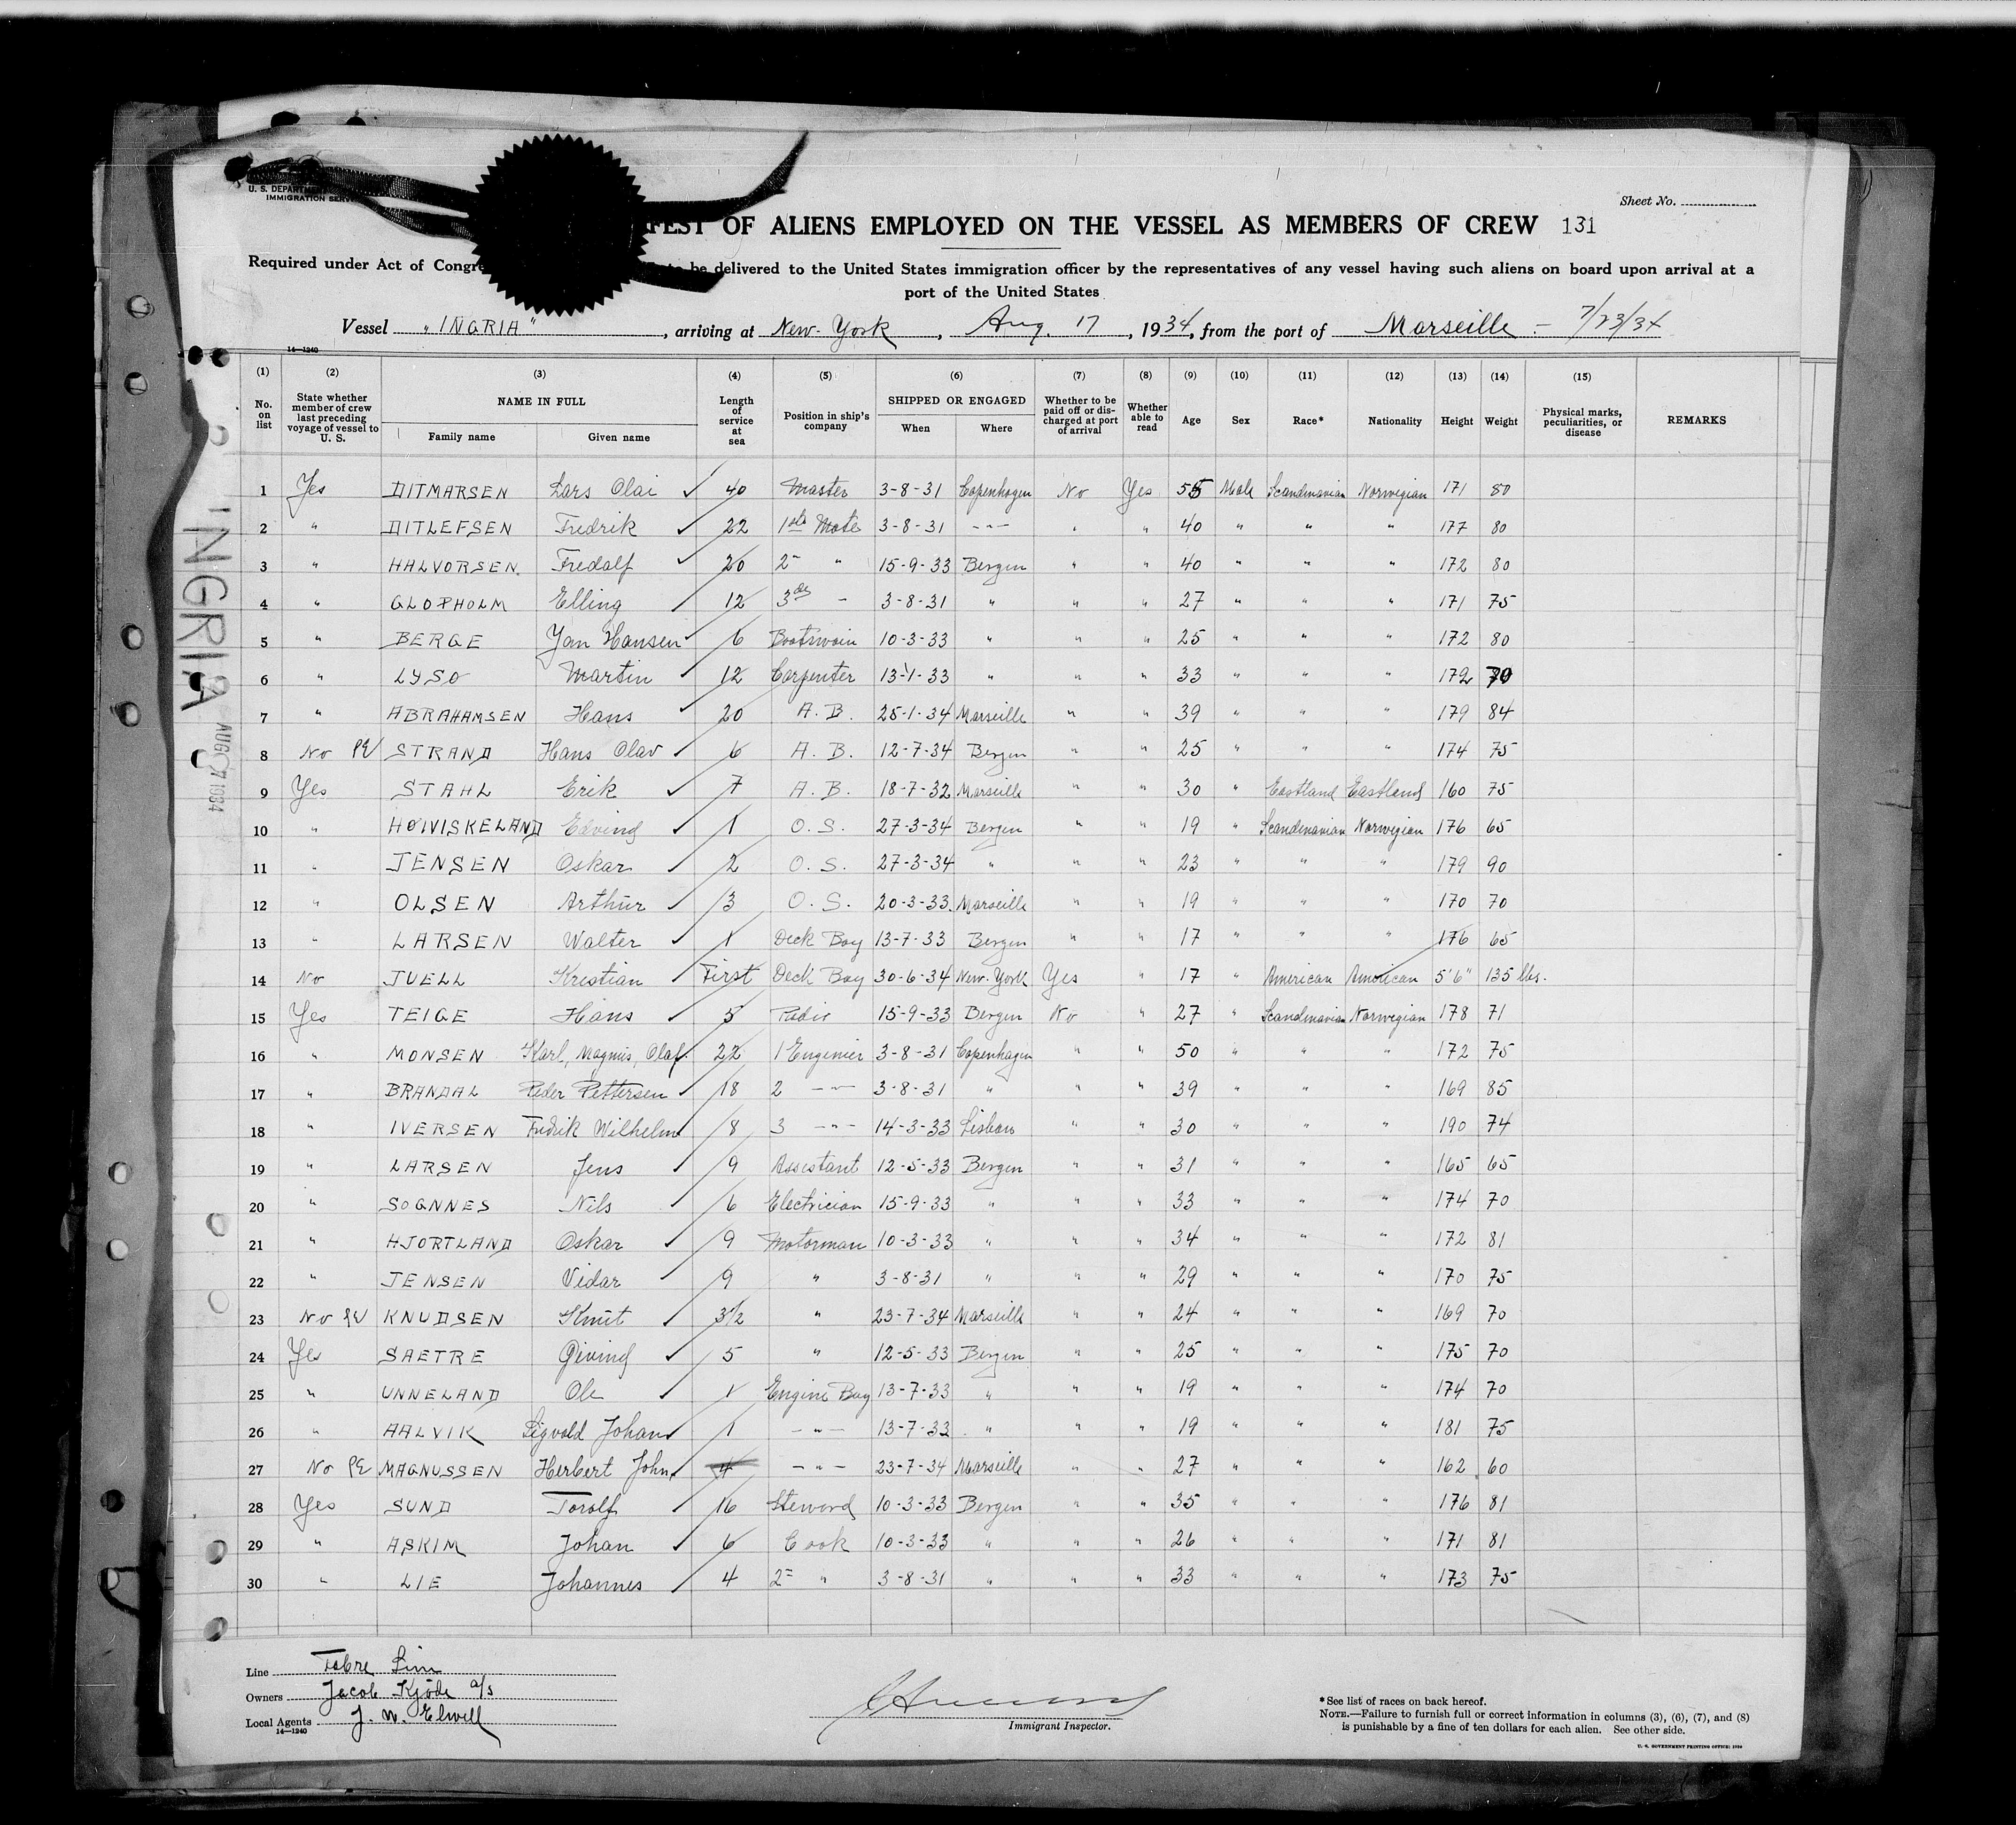 U. S. DEPART
IMMIGRATION SERV
Sheet No.
FEST OF ALIENS EMPLOYED ON THE VESSEL AS MEMBERS OF CREW 131
Required under Act of Congre to be delivered to the United States immigration officer by the representatives of any vessel having such aliens on board upon arrival at a
port of the United States
Vessel "INGRIA", arriving at New-York, Aug. 17, 1934, from the port of Marseille - 7/23/34
14—1240
(1) (2) (3) (4) (5) (6) (7) (8) (9) (10) (11) (12) (13) (14) (15)
No. on list State whether member of crew last preceding voyage of vessel to U. S. NAME IN FULL Family name Given name Length of service at sea Position in ship's company SHIPPED OR ENGAGED When Where Whether to be paid off or discharged at port of arrival Whether able to read Age Sex Race* Nationality Height Weight Physical marks, peculiarities, or disease REMARKS
1 Yes DITMARSEN Lars Olai ✓ 40 Master 3-8-31 Copenhagen No Yes 55 Male Scandinavian Norwegian 171 80
2 " DITLEFSEN Fredrik ✓ 22 1ste Mate 3-8-31 -"- " " 40 " " " 177 80
3 " HALVORSEN Fredolf ✓ 20 2- " 15-9-33 Bergen " " 40 " " " 172 80
4 " GLOPHOLM Elling ✓ 12 3de - 3-8-31 " " " 27 " " " 171 75
5 " BERGE Jan Hansen ✓ 6 Boatswain 10-3-33 " " " 25 " " " 172 80
6 " LYSO Martin ✓ 12 Carpenter 13-1-33 " " " 33 " " " 172 70
7 " ABRAHAMSEN Hans ✓ 20 A. B. 25-1-34 Marseille " " 39 " " " 179 84
8 No PE STRAND Hans Olav ✓ 6 A. B. 12-7-34 Bergen " " 25 " " " 174 75
9 Yes STAHL Erik ✓ 7 A. B. 18-7-32 Marseille " " 30 " Eastland Eastland 160 75
10 " HØIVISKELAND Edvind ✓ 1 O. S. 27-3-34 Bergen " " 19 " Scandinavian Norwegian 176 65
11 " JENSEN Oskar ✓ 2 O. S. 27-3-34 " " " 23 " " " 179 90
12 " OLSEN Arthur ✓ 3 O. S. 20-3-33 Marseille " " 19 " " " 170 70
13 " LARSEN Walter ✓ 1 Deck Boy 13-7-33 Bergen " " 17 " " " 176 65
14 No JUELL Kristian ✓ First Deck Boy 30-6-34 New-York Yes " 17 " American American 5'6" 135 lbs.
15 Yes TEIGE Hans ✓ 5 Radio 15-9-33 Bergen No " 27 " Scandinavian Norwegian 178 71
16 " MONSEN Karl, Magnus, Olaf. 22 1 Enginier 3-8-31 Copenhagen " " 50 " " " 172 75
17 " BRANDAL Peder Pettersen ✓ 18 2 -"- 3-8-31 " " " 39 " " " 169 85
18 " IVERSEN Fredrik Wilhelm ✓ 8 3 -"- 14-3-33 Lisbon " " 30 " " " 190 74
19 " LARSEN Jens ✓ 9 Assistant 12-5-33 Bergen " " 31 " " " 165 65
20 " SOGNNES Nils ✓ 6 Electrician 15-9-33 " " " 33 " " " 174 70
21 " HJORTLAND Oskar ✓ 9 Motorman 10-3-33 " " " 34 " " " 172 81
22 " JENSEN Vidar ✓ 9 " 3-8-31 " " " 29 " " " 170 75
23 No PE KNUDSEN Knut ✓ 3½ " 23-7-34 Marseille " " 24 " " " 169 70
24 Yes SAETRE Øivind ✓ 5 " 12-5-33 Bergen " " 25 " " " 175 70
25 " UNNELAND Ole ✓ 1 Engine Boy 13-7-33 " " " 19 " " " 174 70
26 " AALVIK Sigvald Johan ✓ 1 -"- 13-7-33 " " " 19 " " " 181 75
27 No PE MAGNUSSEN Herbert John ✓ 4 -"- 23-7-34 Marseille " " 27 " " " 162 60
28 Yes SUND Torolf ✓ 16 Steward 10-3-33 Bergen " " 35 " " " 176 81
29 " ASKIM Johan ✓ 6 Cook 10-3-33 " " " 26 " " " 171 81
30 " LIE Johannes ✓ 4 2- " 3-8-31 " " " 33 " " " 173 75
INGRIA
AUG 1934
Line Fabre Line
Owners Jacob Kjøde a/s
Local Agents J. W. Elwell
14—1240
Immigrant Inspector.
*See list of races on back hereof.
NOTE.—Failure to furnish full or correct information in columns (3), (6), (7), and (8)
is punishable by a fine of ten dollars for each alien. See other side.
U. S. GOVERNMENT PRINTING OFFICE: